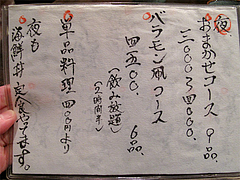 夜
おまかせコース 9品.
三〇〇〇〜四〇〇〇.
バラモン凧コース
四五〇〇. 6品.
(飲み放題)
(2時間半)
単品料理 四〇〇円より
夜も
海鮮丼 定食やってます。